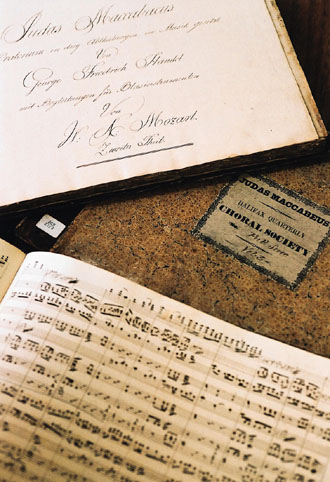 Judas Maccabaeus
Oratorium in drey Abtheilungen in Musik gesetzt
Von
George Friedrich Handel
mit Begleitungen für Blasinstrumenten
Von
W. A. Mozart.
Zweiter Theil.
JUDAS MACCABEUS
HALIFAX QUARTERLY
CHORAL SOCIETY